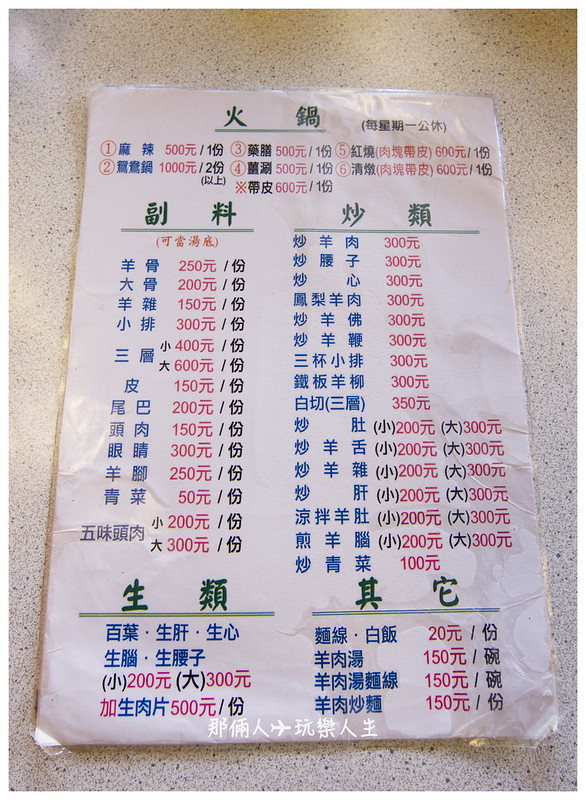 火鍋 (每星期一公休)
①麻辣 500元/1份 ③藥膳 500元/1份 ⑤紅燒(肉塊帶皮) 600元/1份
②鴛鴦鍋 1000元/2份 (以上) ④薑涮 500元/1份 ⑥清燉(肉塊帶皮) 600元/1份
※帶皮 600元/1份
副料
(可當湯底)
羊骨 250元/份
大骨 200元/份
羊雜 150元/份
小排 300元/份
三層 小 400元/份
大 600元/份
皮 150元/份
尾巴 200元/份
頭肉 150元/份
眼睛 300元/份
羊腳 250元/份
青菜 50元/份
五味頭肉 小 200元/份
大 300元/份
炒類
炒羊肉 300元
炒腰子 300元
炒心 300元
鳳梨羊肉 300元
炒羊佛 300元
炒羊鞭 300元
三杯小排 300元
鐵板羊柳 300元
白切(三層) 350元
炒肚 (小)200元 (大)300元
炒羊舌 (小)200元 (大)300元
炒羊雜 (小)200元 (大)300元
炒肝 (小)200元 (大)300元
涼拌羊肚 (小)200元 (大)300元
煎羊腦 (小)200元 (大)300元
炒青菜 100元
生類
百葉．生肝．生心
生腦．生腰子
(小)200元 (大)300元
加生肉片500元/份
其它
麵線．白飯 20元/份
羊肉湯 150元/碗
羊肉湯麵線 150元/碗
羊肉炒麵 150元/份
那倆人玩樂人生